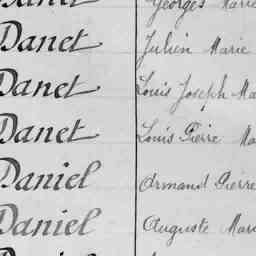 Georges Marie
Danet Julien Marie
Danet Louis Joseph Ma
Danet Louis Pierre Ma
Daniel Armand Pierre
Daniel Auguste Mari